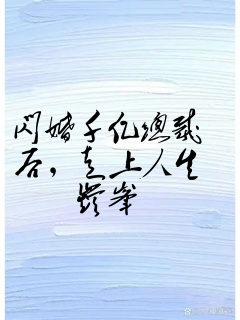 闪婚千亿总裁
后，走上人生
巅峰